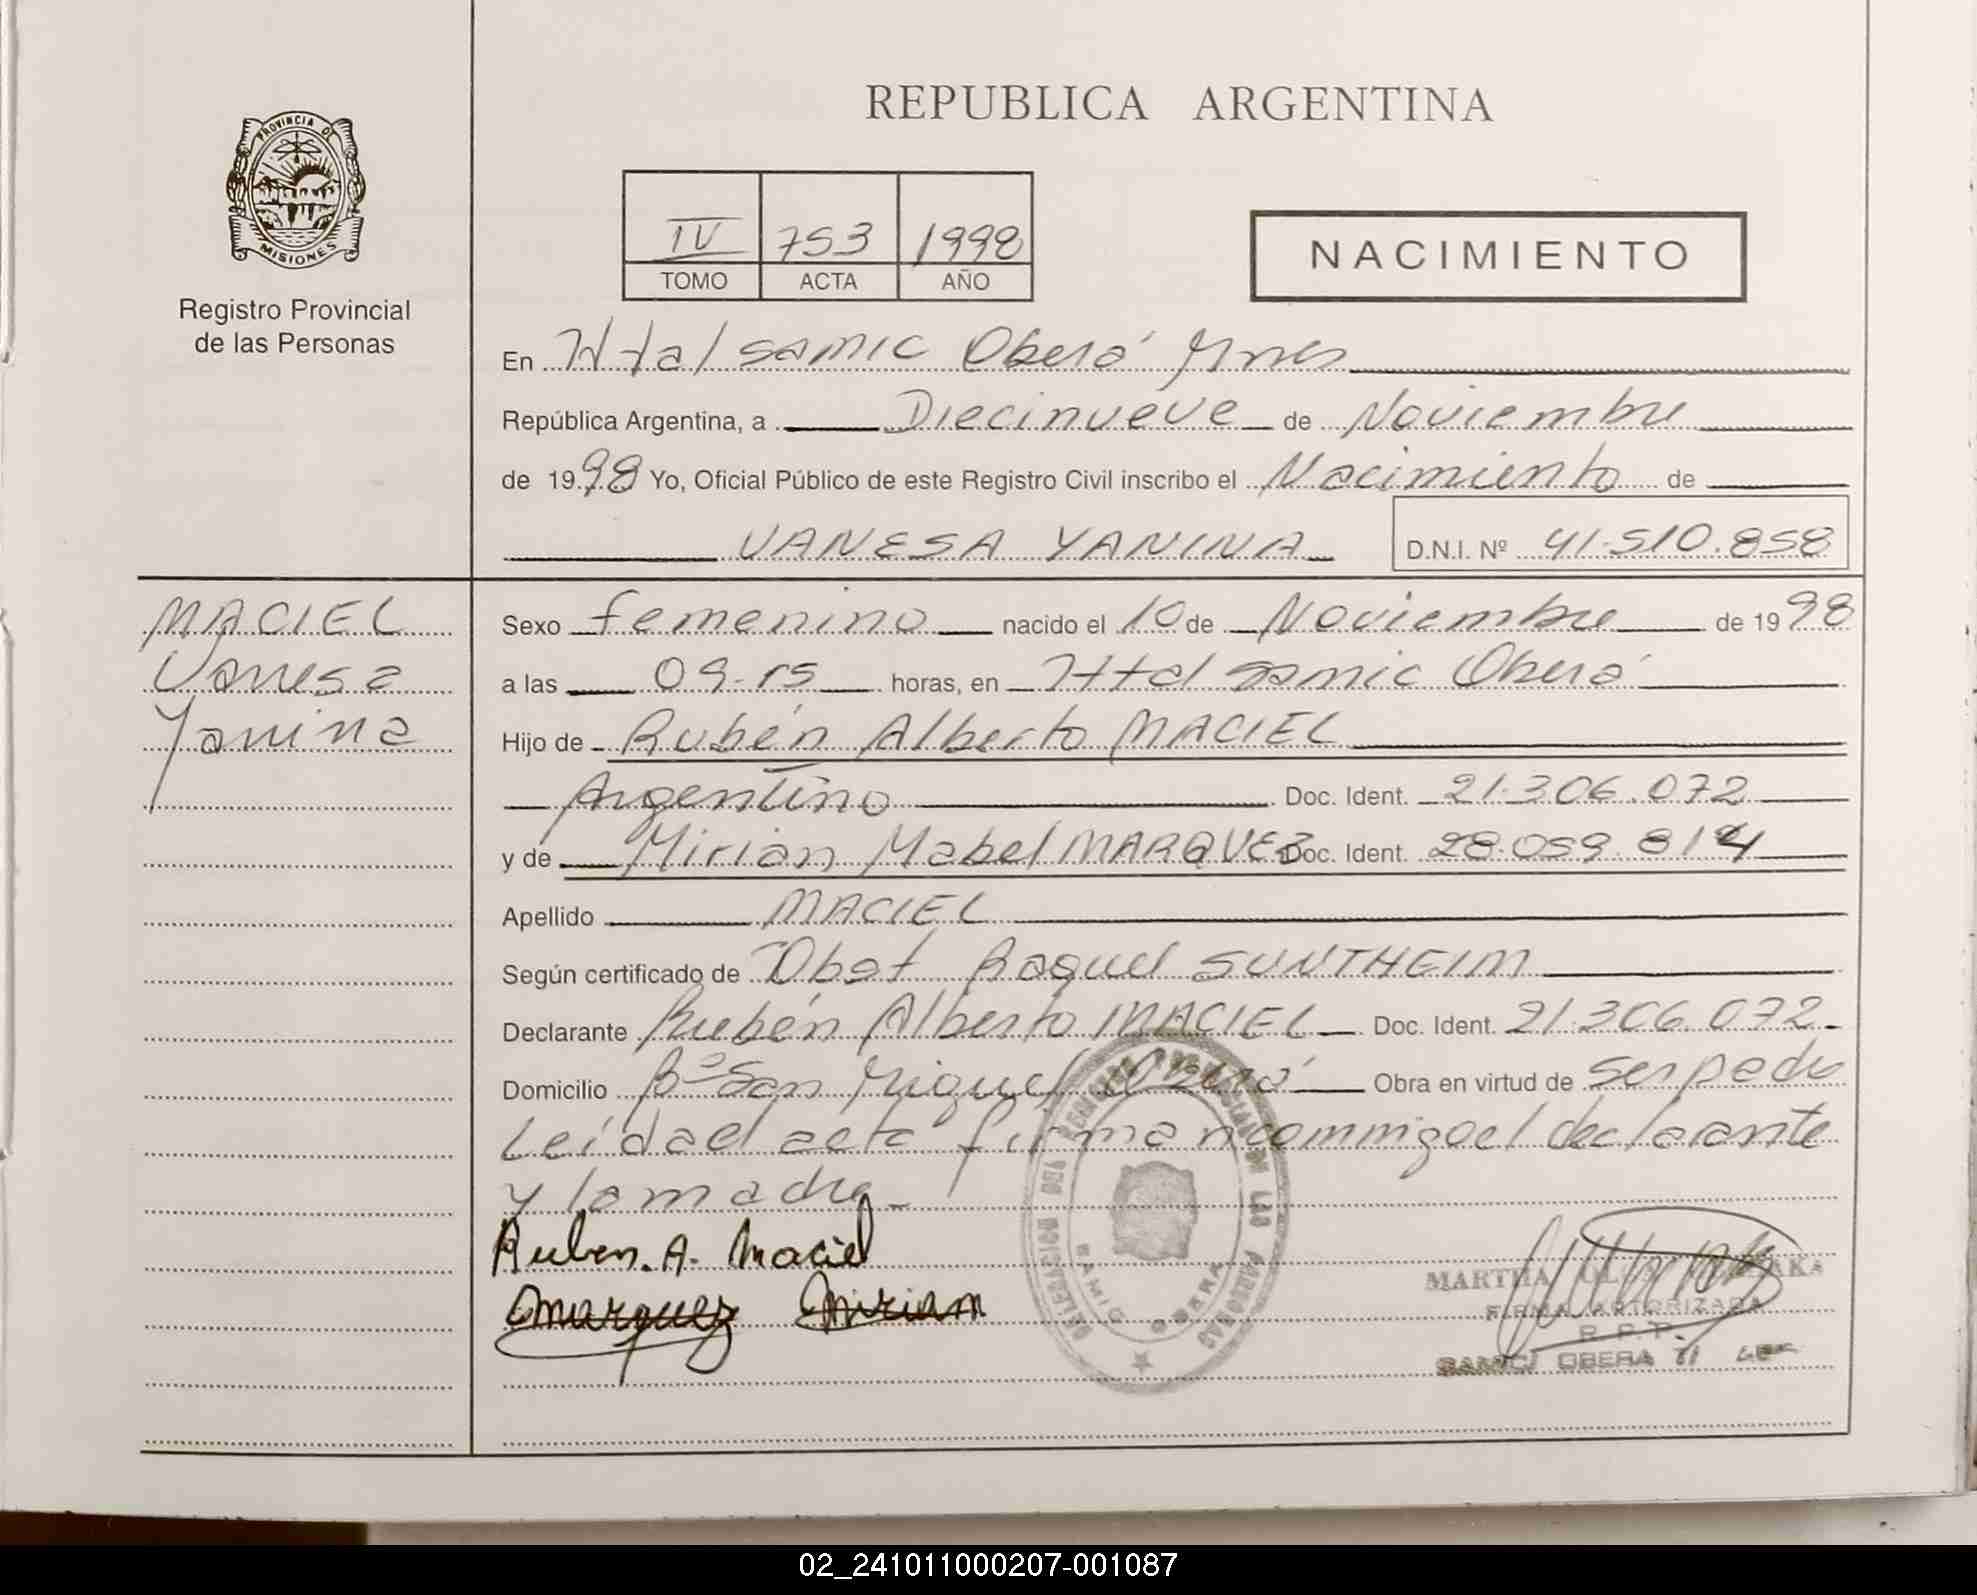 REPUBLICA ARGENTINA
PROVINCIA DE
MISIONES
Registro Provincial
de las Personas
IV 753 1998
TOMO ACTA AÑO
NACIMIENTO
En Htal samic Oberá Mnes
República Argentina, a Diecinueve de Noviembre
de 1998 Yo, Oficial Público de este Registro Civil inscribo el Nacimiento de
VANESA YANINA D.N.I. Nº 41.510.858
MACIEL
Vanesa
Yanina
Sexo femenino nacido el 10 de Noviembre de 1998
a las 09-15 horas, en Httal samic Oberá
Hijo de Rubén Alberto MACIEL
Argentino Doc. Ident. 21.306.072
y de Mirian Mabel MARQUEZ Doc. Ident. 28.059.814
Apellido MACIEL
Según certificado de Obst Raquel SUNTHEIM
Declarante Rubén Alberto MACIEL Doc. Ident. 21.306.072
Domicilio Bº San Miguel Oberá Obra en virtud de ser padre
Leída el acta firman conmigo el declarante
y la madre
Ruben. A. Maciel
Marquez Miriam
REGISTRO PROVINCIAL DE LAS PERSONAS
SAMIC OBERA
MARTHA
FIRMA AUTORIZADA
R.P.P.
SAMIC OBERA
02_241011000207-001087